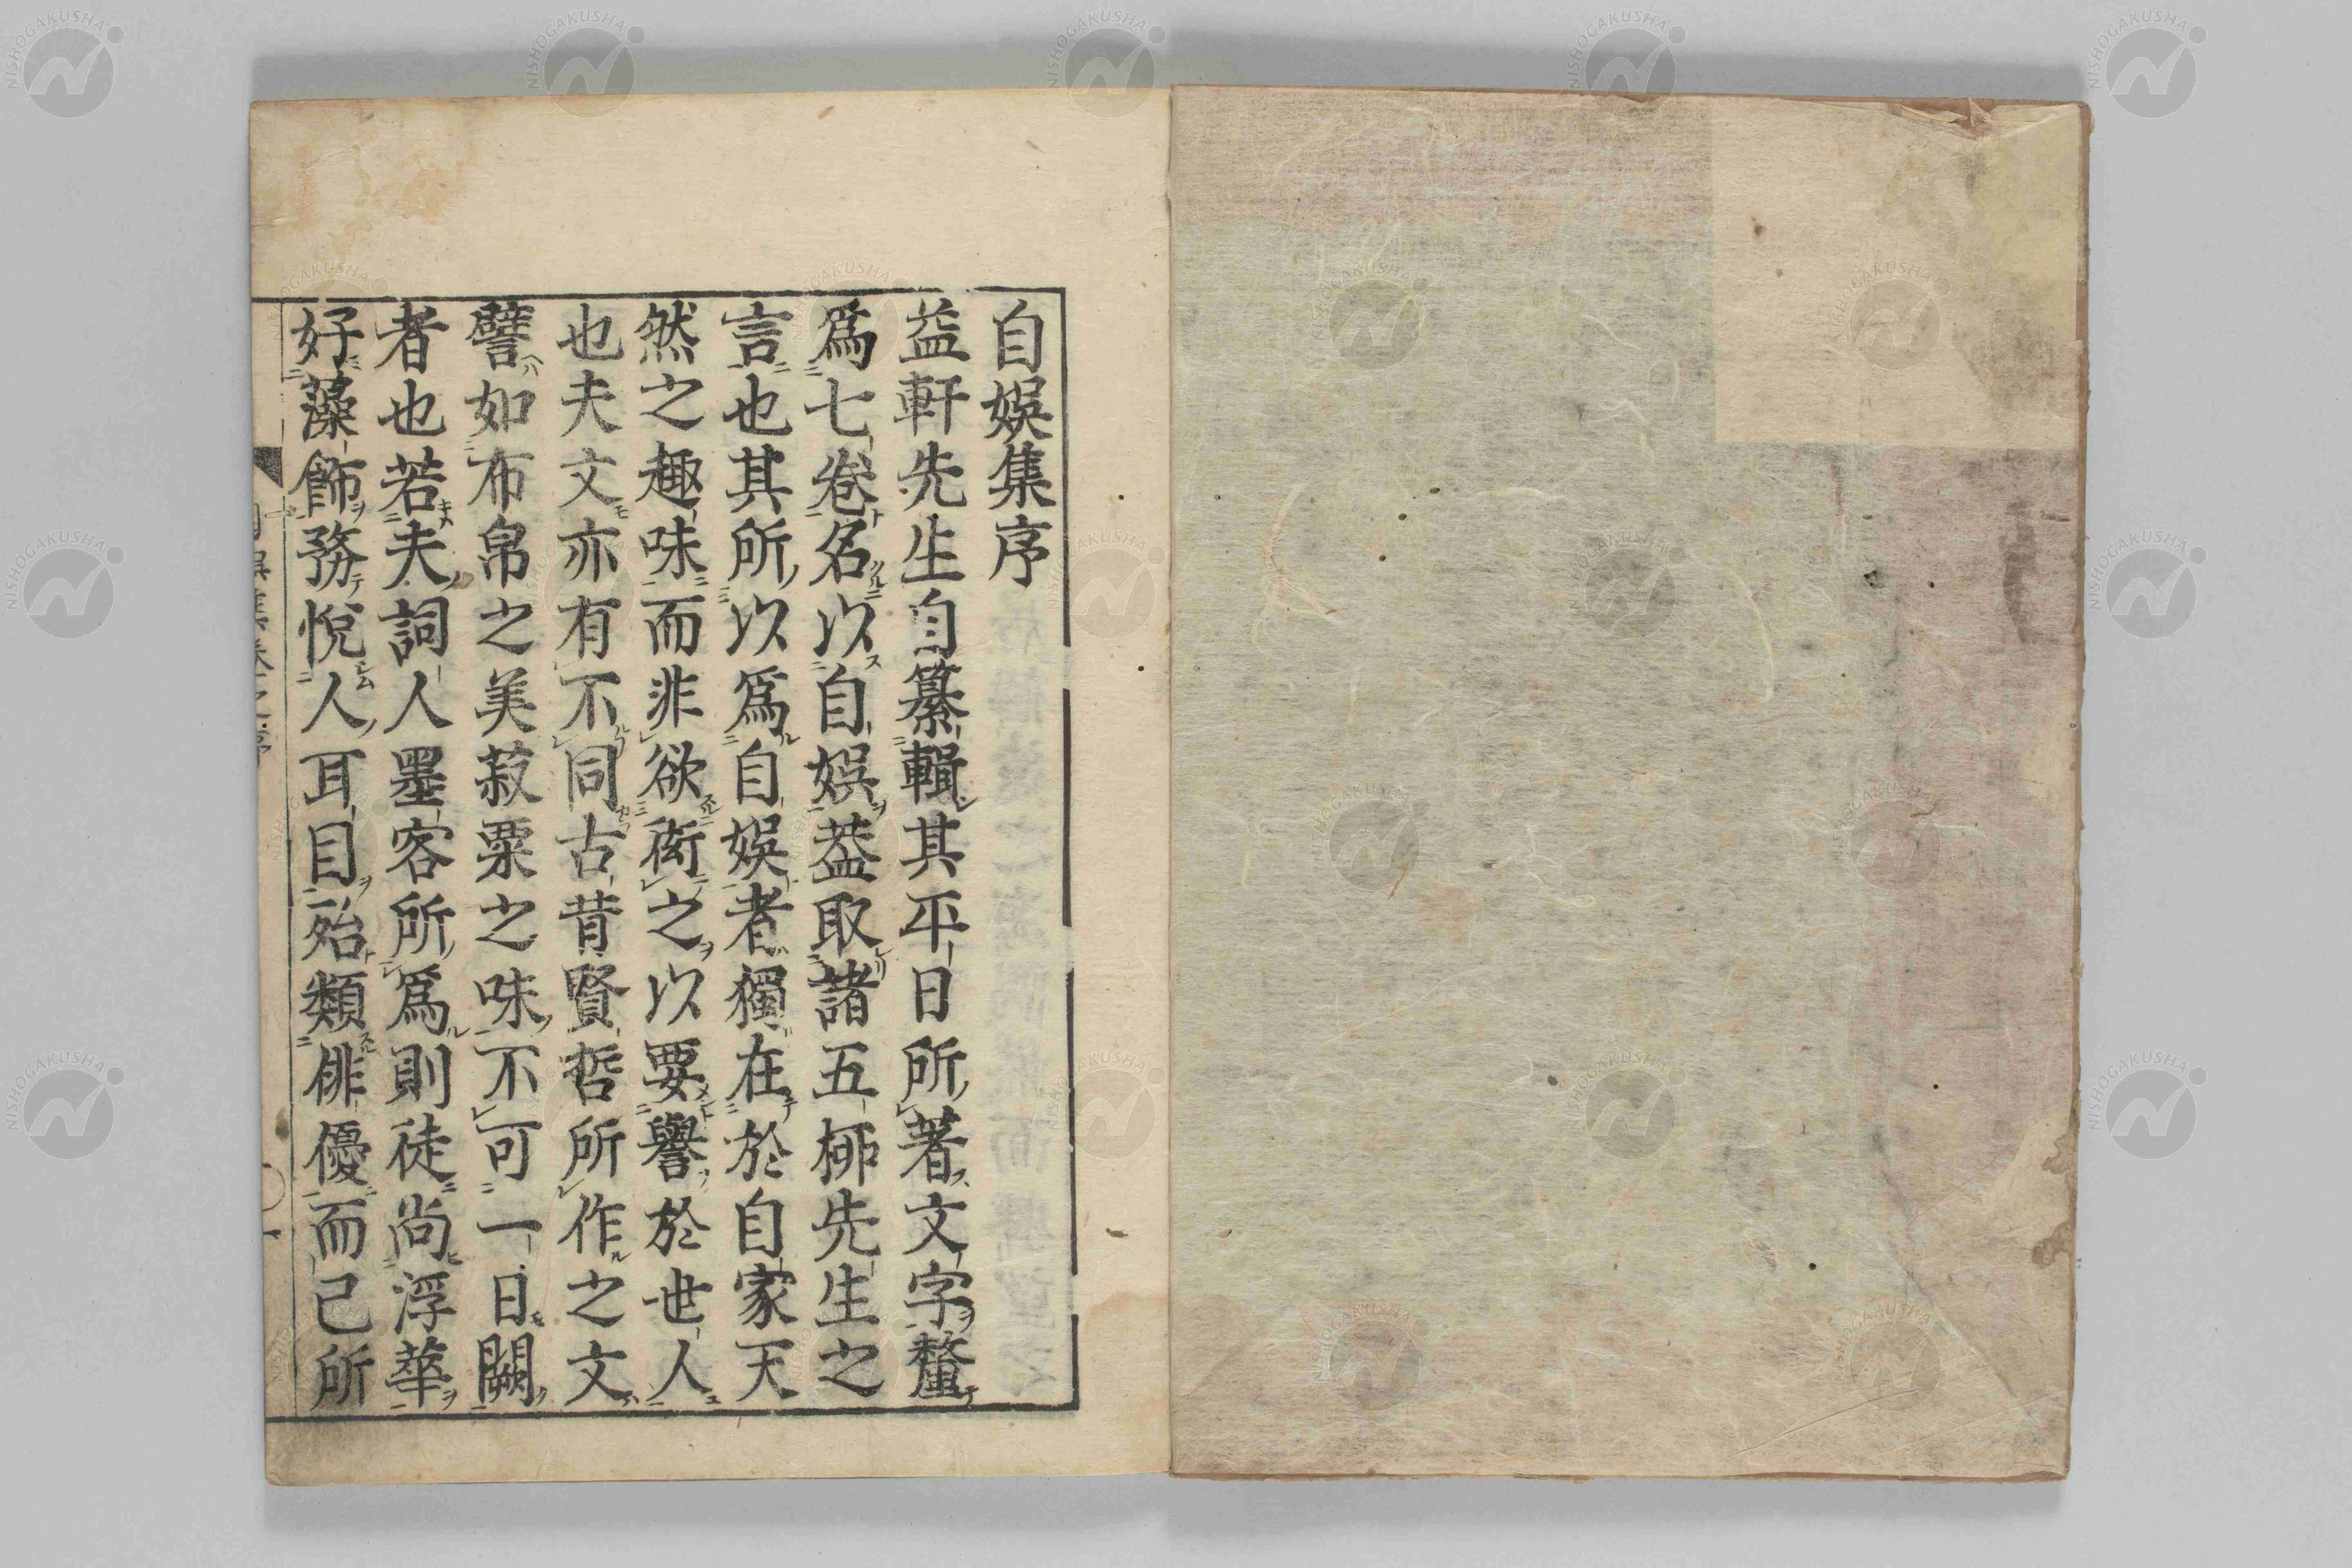 自娯集序
益軒先生自纂輯其平日所著文字釐
爲七卷名以自娯葢取諸五栁先生之
言也其所以爲自娯者獨在於自家天
然之趣味而非欲衒之以要譽於世人
也夫文亦有不同古昔賢哲所作之文
譬如布帛之美菽粟之味不可一日闕
者也若夫詞人墨客所爲則徒尚浮華
好藻飾務悅人耳目殆類俳優而己所
NISHOGAKUSHA